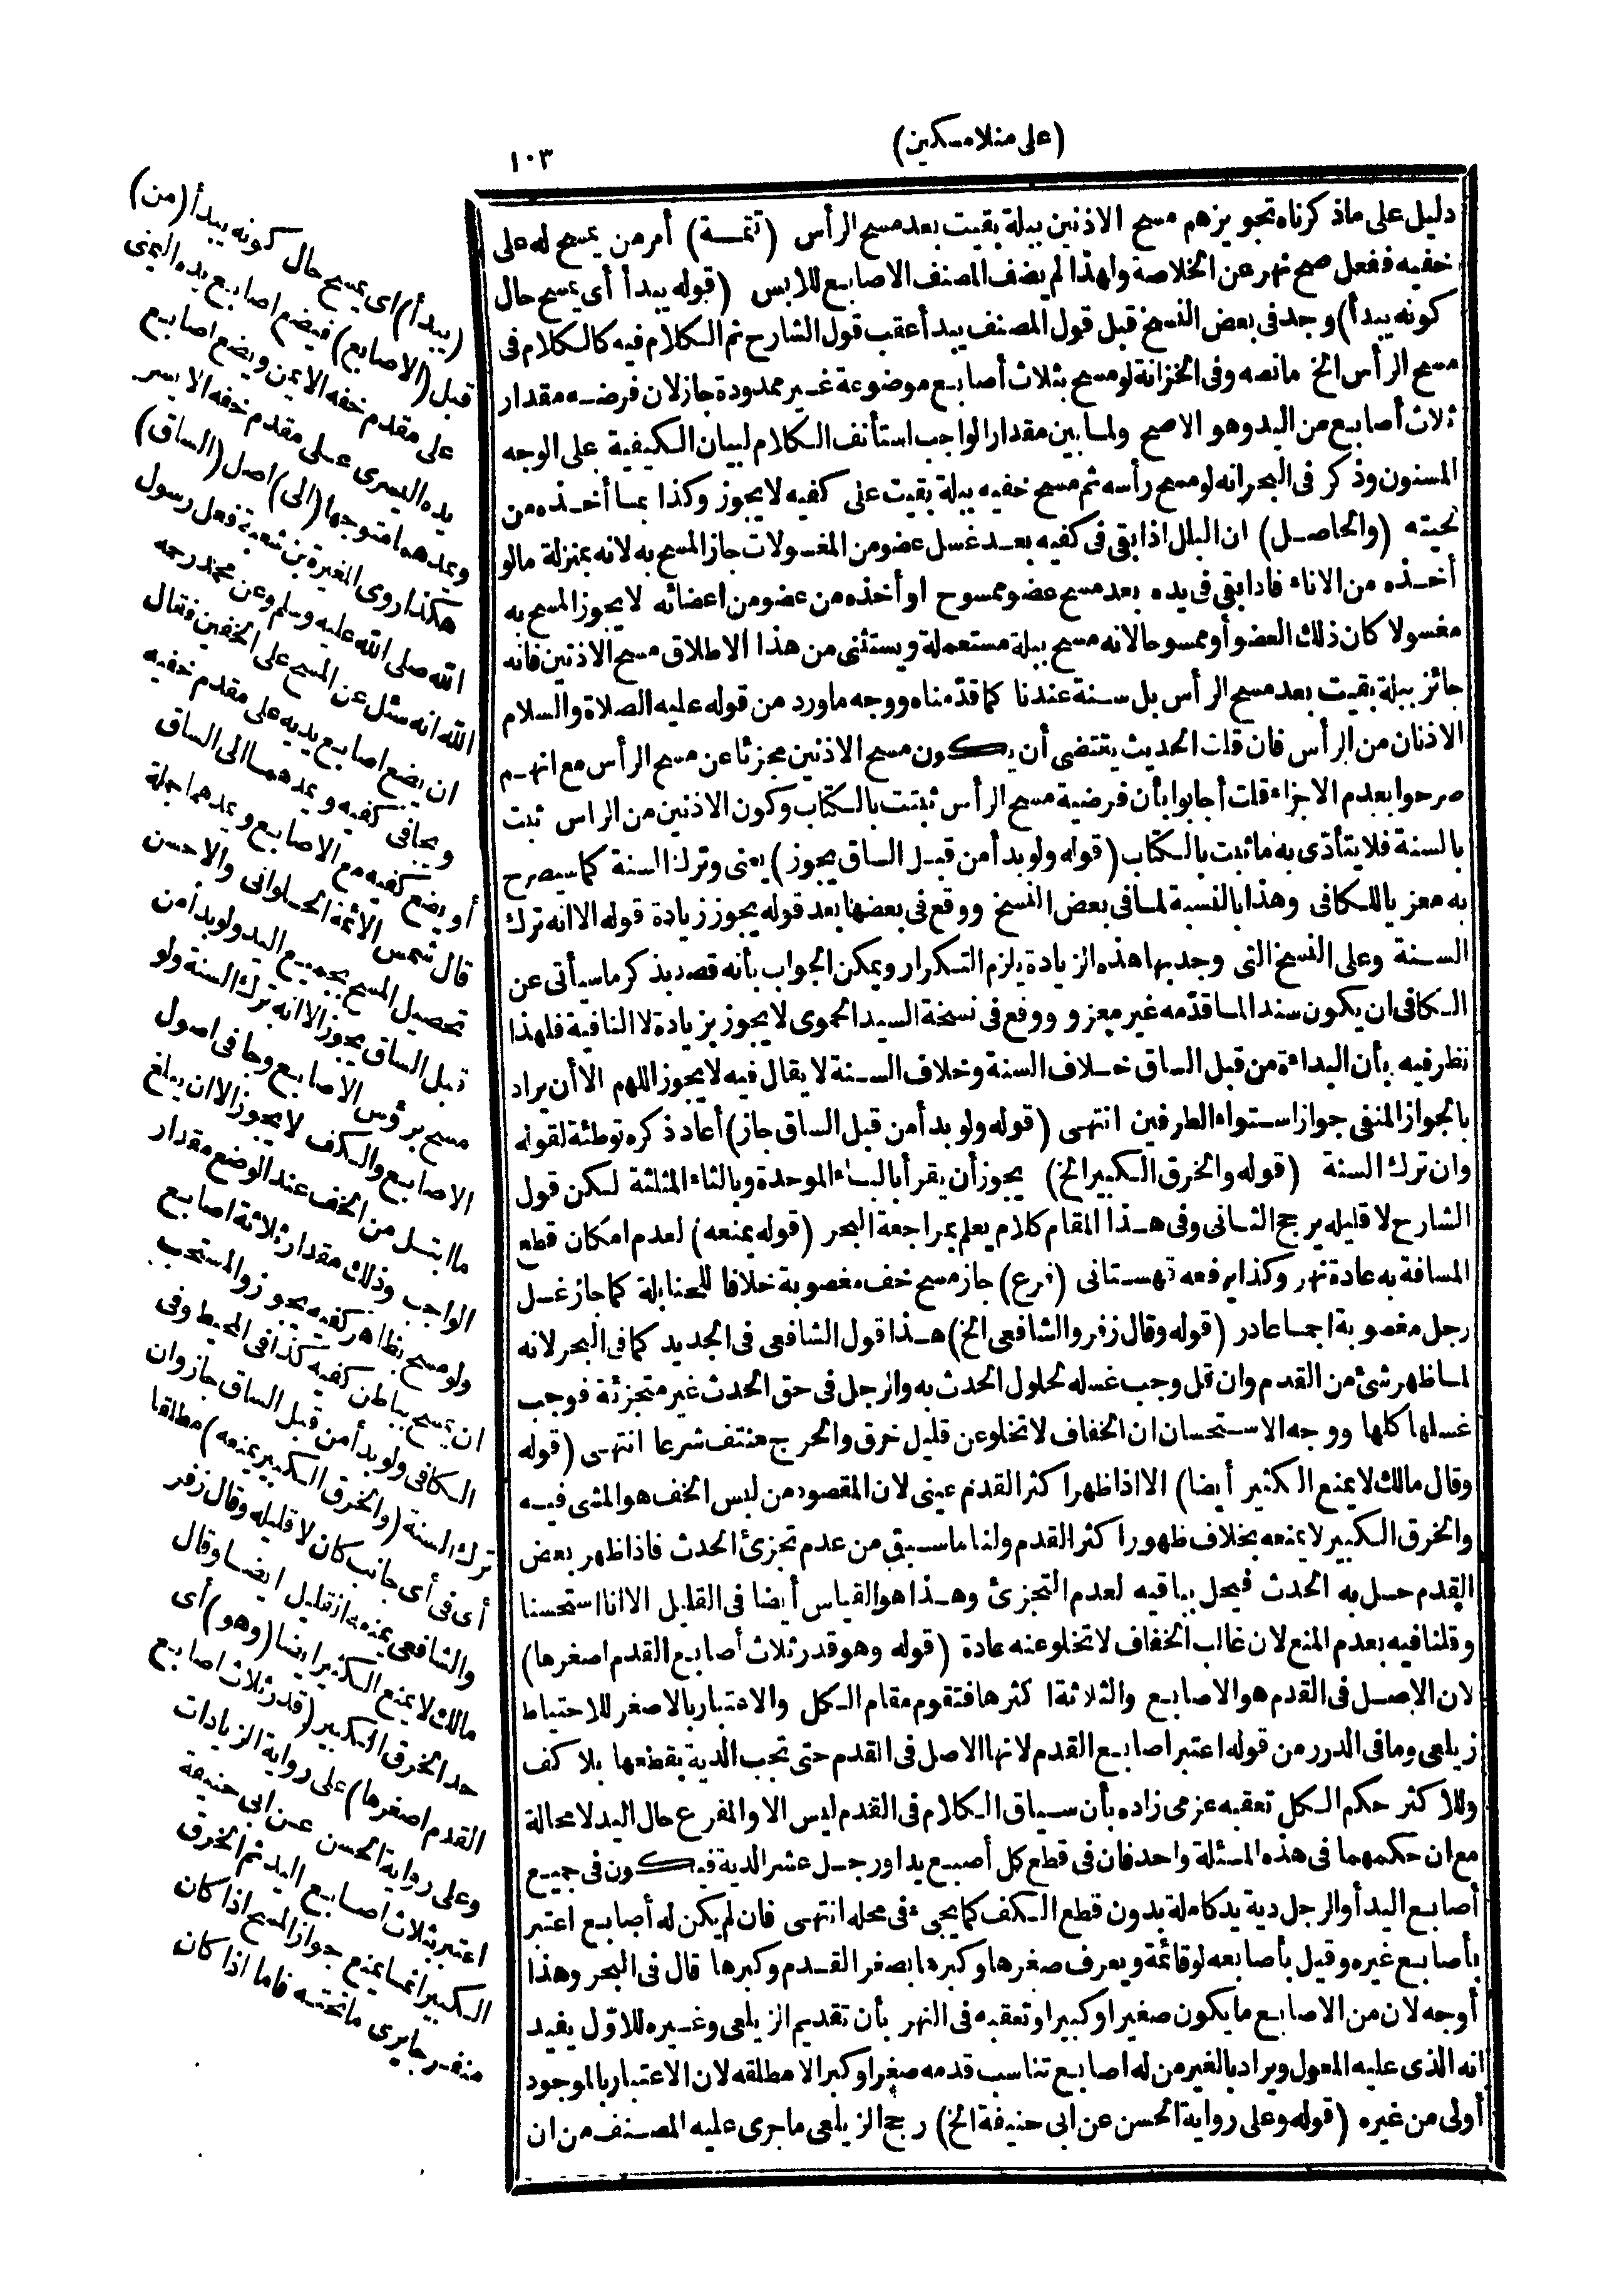 (على منلا مسكين)
١٠٣
دليل على ماذكرناه تجويزهم مسح الاذنين ببلة بقيت بعد مسح الرأس (تتمـة) أمر من يمسح له على
خفيه ففعل صح نهر عن الخلاصة ولهذا لم يضف المصنف الاصابع للابس (قوله يبدأ أى يمسح حال
كونه يبدأ) وجد فى بعض النسخ قبل قول المصنف يبدأ عقب قول الشارح ثم الكلام فيه كالكلام فى
مسح الرأس الخ مانصه وفى الخزانة لو مسح بثلاث أصابع موضوعة غير ممدودة جاز لان فرضه مقدار
ثلاث أصابع من اليد وهو الاصح ولما بين مقدار الواجب استأنف الكلام لبيان الكيفية على الوجه
المسنون وذكر فى البحر انه لو مسح رأسه ثم مسح خفيه ببلة بقيت على كفيه لا يجوز وكذا بما أخذه من
لحيته (والحاصل) ان البلل اذا بقى فى كفيه بعد غسل عضو من المغسولات جاز المسح به لانه بمنزلة مالو
أخذه من الاناء فاذا بقى فى يده بعد مسح عضو ممسوح او أخذه من عضو من اعضائه لا يجوز المسح به
مغسولا كان ذلك العضو أو ممسوحا لانه مسح ببلة مستعملة ويستثنى من هذا الاطلاق مسح الاذنين فانه
جائز ببلة بقيت بعد مسح الرأس بل سنة عندنا كما قدّمناه ووجه ماورد من قوله عليه الصلاة والسلام
الاذنان من الرأس فان قلت الحديث يقتضى أن يكون مسح الاذنين مجزئا عن مسح الرأس مع انهم
صرحوا بعدم الاجزاء قلت أجابوا بأن فرضية مسح الرأس ثبتت بالكتاب وكون الاذنين من الراس ثبت
بالسنة فلا يتأدّى به ما ثبت بالكتاب (قوله ولو بدأ من قبل الساق يجوز) يعنى وترك السنة كما سيصرح
به معزيا للكافى وهذا بالنسبة لما فى بعض النسخ ووقع فى بعضها بعد قوله يجوز زيادة قوله الا انه ترك
السنة وعلى النسخ التى وجد بها هذه الزيادة يلزم التكرار ويمكن الجواب بأنه قصد بذكر ما سيأتى عن
الكافى ان يكون سندا لما قدّمه غير معزو ووقع فى نسخة السيد الحموى لا يجوز بزيادة لا النافية فلهذا
نظر فيه بأن البداءة من قبل الساق خلاف السنة وخلاف السنة لا يقال فيه لا يجوز اللهم الا أن يراد
بالجواز المنفى جواز استواء الطرفين انتهى (قوله ولو بدأ من قبل الساق جاز) أعاد ذكره توطئة لقوله
وان ترك السنة (قوله والخرق الكبير الخ) يجوز أن يقرأ بالباء الموحدة وبالثاء المثلثة لكن قول
الشارح لا قليله يرجح الثانى وفى هذا المقام كلام يعلم بمراجعة البحر (قوله يمنعه) لعدم امكان قطع
المسافة به عادة نهر وكذا يرفعه قهستانى (فرع) جاز مسح خف مغصوبة خلافا للحنابلة كما جاز غسل
رجل مغصوبة اجماعا در (قوله وقال زفر والشافعى الخ) هذا قول الشافعى فى الجديد كما فى البحر لانه
لما ظهر شئ من القدم وان قل وجب غسله لحلول الحدث به والرجل فى حق الحدث غير متجزئة فوجب
غسلها كلها ووجه الاستحسان ان الخفاف لا تخلو عن قليل خرق والحرج منتف شرعا انتهى (قوله
وقال مالك لا يمنع الكثير أيضا) الا اذا ظهر اكثر القدم عينى لان المقصود من لبس الخف هو المشى فيه
والخرق الكبير لا يمنعه بخلاف ظهور اكثر القدم ولنا ما سبق من عدم تجزئ الحدث فاذا ظهر بعض
القدم حل به الحدث فيحل بباقيه لعدم التجزئ وهذا هو القياس أيضا فى القليل الا انا استحسنا
وقلنا فيه بعدم المنع لان غالب الخفاف لا تخلو عنه عادة (قوله وهو قدر ثلاث أصابع القدم اصغرها)
لان الاصل فى القدم هو الاصابع والثلاثة اكثرها فتقوم مقام الكل والاعتبار بالاصغر للاحتياط
زيلعى وما فى الدرر من قوله اعتبر اصابع القدم لانها الاصل فى القدم حتى تجب الدية بقطعها بلا كف
وللاكثر حكم الكل تعقبه عزمى زاده بأن سياق الكلام فى القدم ليس الا والمفرع حال اليد لا محالة
مع ان حكمهما فى هذه المسئلة واحد فان فى قطع كل أصبع يد او رجل عشر الدية فيكون فى جميع
أصابع اليد أو الرجل دية يد كاملة بدون قطع الكف كما يجىء فى محله انتهى فان لم يكن له أصابع اعتبر
بأصابع غيره وقيل بأصابعه لو قائمة ويعرف صغرها وكبرها بصغر القدم وكبرها قال فى البحر وهذا
أوجه لان من الاصابع ما يكون صغيرا وكبيرا وتعقبه فى النهر بأن تقديم الزيلعى وغيره للاوّل يفيد
انه الذى عليه المعول ويراد بالغير من له اصابع تناسب قدمه صغرا وكبرا لا مطلقه لان الاعتبار بالموجود
أولى من غيره (قوله وعلى رواية الحسن عن ابى حنيفة الخ) رجح الزيلعى ماجرى عليه المصنف من ان
(يبدأ) اى يمسح حال كونه يبدأ (من)
قبل (الاصابع) فيضع اصابع يده اليمنى
على مقدم خفه الايمن ويضع اصابع
يده اليسرى على مقدم خفه الايسر
ويمدهما متوجها (الى) اصل (الساق)
هكذا روى المغيرة بن شعبة فعل رسول
الله صلى الله عليه وسلم وعن محمد رحمه
الله انه سئل عن المسح على الخفين فقال
ان يضع اصابع يديه على مقدم خفيه
ويجافى كفيه ويمدهما الى الساق
أو يضع كفيه مع الاصابع ويمدهما جملة
قال شمس الائمة الحلوانى والاحسن
تحصيل المسح بجميع اليد ولو بدأ من
قبل الساق يجوز الا انه ترك السنة ولو
مسح برؤس الاصابع وجافى اصول
الاصابع والكف لا يجوز الا ان يبلغ
ما ابتل من الخف عند الوضع مقدار
الواجب وذلك مقدار ثلاثة اصابع
ولو مسح بظاهر كفيه يجوز والمستحب
ان يمسح بباطن كفيه كذا فى المحيط وفى
الكافى ولو بدأ من قبل الساق جاز وان
ترك السنة (والخرق الكبير يمنعه) مطلقا
أى فى أى جانب كان لا قليله وقال زفر
والشافعى يمنعه القليل ايضا وقال
مالك لا يمنع الكثير ايضا (وهو) أى
حد الخرق الكبير (قدر ثلاث اصابع
القدم اصغرها) على رواية الزيادات
وعلى رواية الحسن عن ابى حنيفة
اعتبر بثلاث اصابع اليد ثم الخرق
الكبير انما يمنع جواز المسح اذا كان
منفرجا يرى ما تحته فاما اذا كان